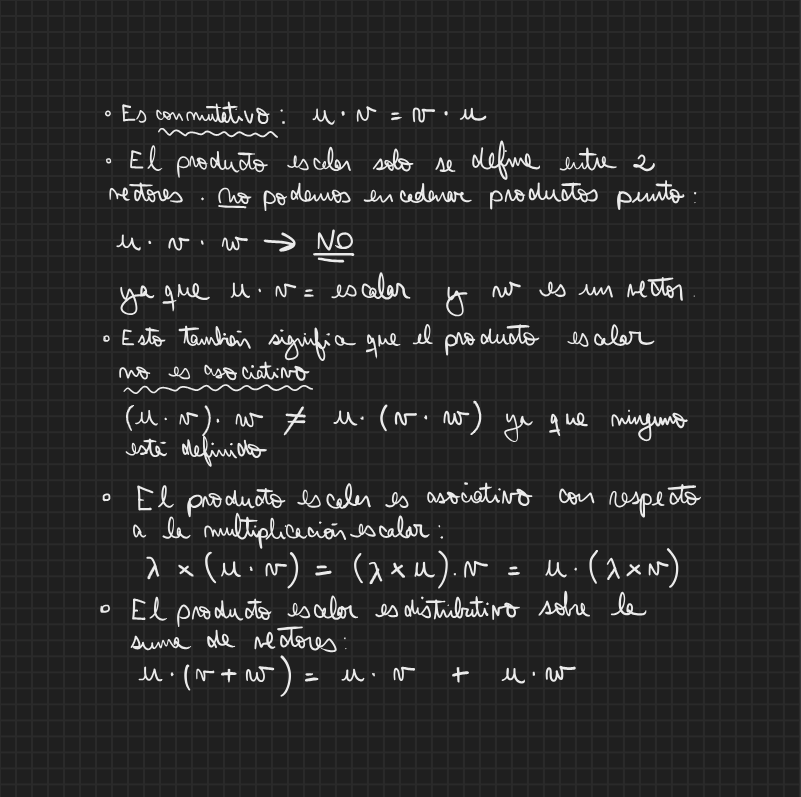 ◦ Es conmutativo: u · v = v · u
◦ El producto escalar solo se define entre 2
vectores. No podemos encadenar productos punto:
u · v · w → NO
ya que u · v = escalar y w es un vector.
◦ Esto también significa que el producto escalar
no es asociativo
(u · v) · w ≠ u · (v · w) ya que ninguno
está definido
◦ El producto escalar es asociativo con respecto
a la multiplicación escalar:
λ × (u · v) = (λ × u) · v = u · (λ × v)
◦ El producto escalar es distributivo sobre la
suma de vectores:
u · (v + w) = u · v + u · w